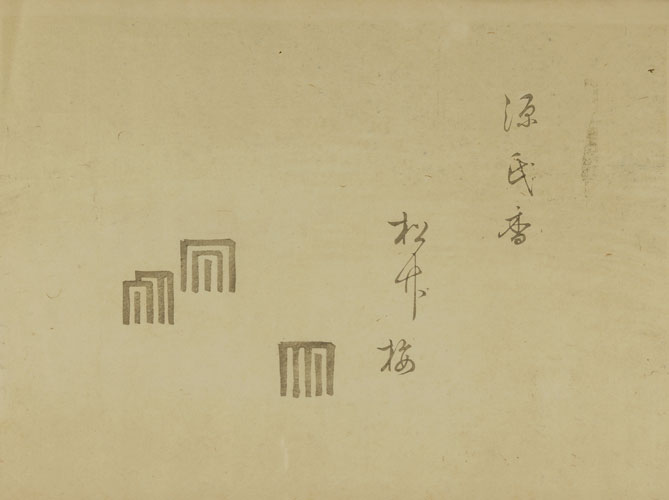 源氏香
松竹梅